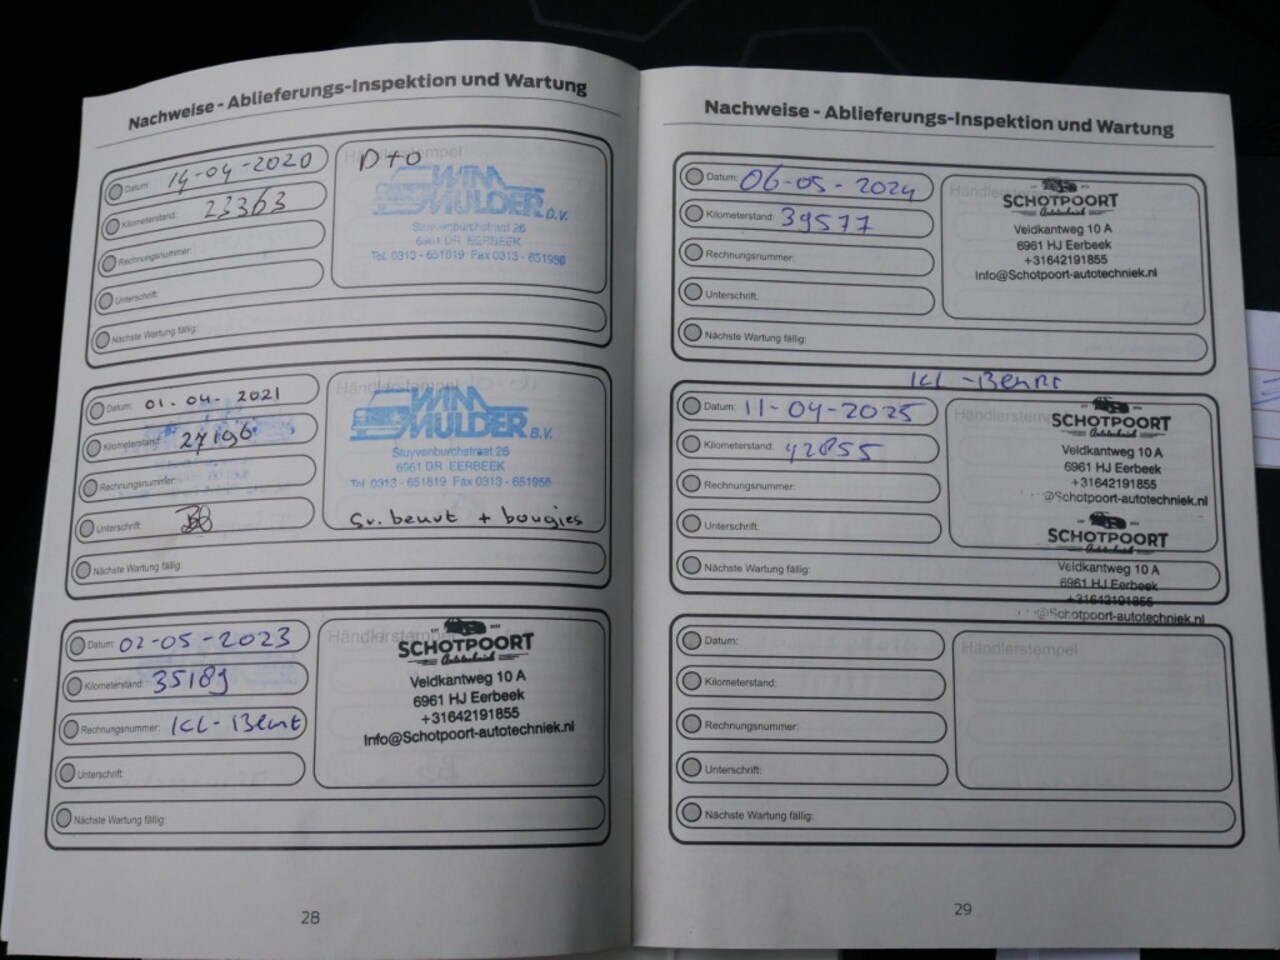 Nachweise - Ablieferungs-Inspektion und Wartung
Datum: 14-04-2020
Kilometerstand: 23363
Rechnungsnummer:
Unterschrift:
Nächste Wartung fällig:
Händlerstempel
D+O
WIM
MULDER B.V.
Stuyvenburchstraat 26
6961 DR EERBEEK
Tel. 0313 - 651819 Fax 0313 - 651956
Datum: 01-04-2021
Kilometerstand: 27196
Rechnungsnummer:
Unterschrift:
Nächste Wartung fällig:
Händlerstempel
WIM
MULDER B.V.
Stuyvenburchstraat 26
6961 DR EERBEEK
Tel 0313 - 651819 Fax 0313 - 651956
Gr. beurt + bougies
Datum: 02-05-2023
Kilometerstand: 35189
Rechnungsnummer: KL-Beurt
Unterschrift:
Nächste Wartung fällig:
Händlerstempel
SCHOTPOORT
Autotechniek
Veldkantweg 10 A
6961 HJ Eerbeek
+31642191855
Info@Schotpoort-autotechniek.nl
28
Nachweise - Ablieferungs-Inspektion und Wartung
Datum: 06-05-2024
Kilometerstand: 39577
Rechnungsnummer:
Unterschrift:
Nächste Wartung fällig:
Händlerstempel
SCHOTPOORT
Autotechniek
Veldkantweg 10 A
6961 HJ Eerbeek
+31642191855
Info@Schotpoort-autotechniek.nl
KL-Beurt
Datum: 11-04-2025
Kilometerstand: 42855
Rechnungsnummer:
Unterschrift:
Nächste Wartung fällig:
Händlerstempel
SCHOTPOORT
Autotechniek
Veldkantweg 10 A
6961 HJ Eerbeek
+31642191855
@Schotpoort-autotechniek.nl
SCHOTPOORT
Autotechniek
Veldkantweg 10 A
6961 HJ Eerbeek
+31642191855
@Schotpoort-autotechniek.nl
Datum:
Kilometerstand:
Rechnungsnummer:
Unterschrift:
Nächste Wartung fällig:
Händlerstempel
29